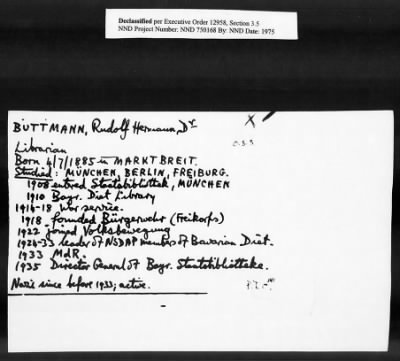 Declassified per Executive Order 12958, Section 3.5
NND Project Number: NND 750168 By: NND Date: 1975
BUTTMANN, Rudolf Hermann, Dr
X
Librarian
Born 4/7/1885 in MARKTBREIT.
Studied: MÜNCHEN, BERLIN, FREIBURG.
1908 entred Staatsbibliothek, MÜNCHEN
1910 Bayr. Diet Library
1914-18 War service.
1918 founded Bürgerwehr (Freikorps)
1922 joined Volksbewegung
1924-33 leader of NSDAP members of Bavarian Diet.
1933 MdR.
1935 Director General of Bayr. Staatsbibliotheke.
Nazi since before 1933; active.